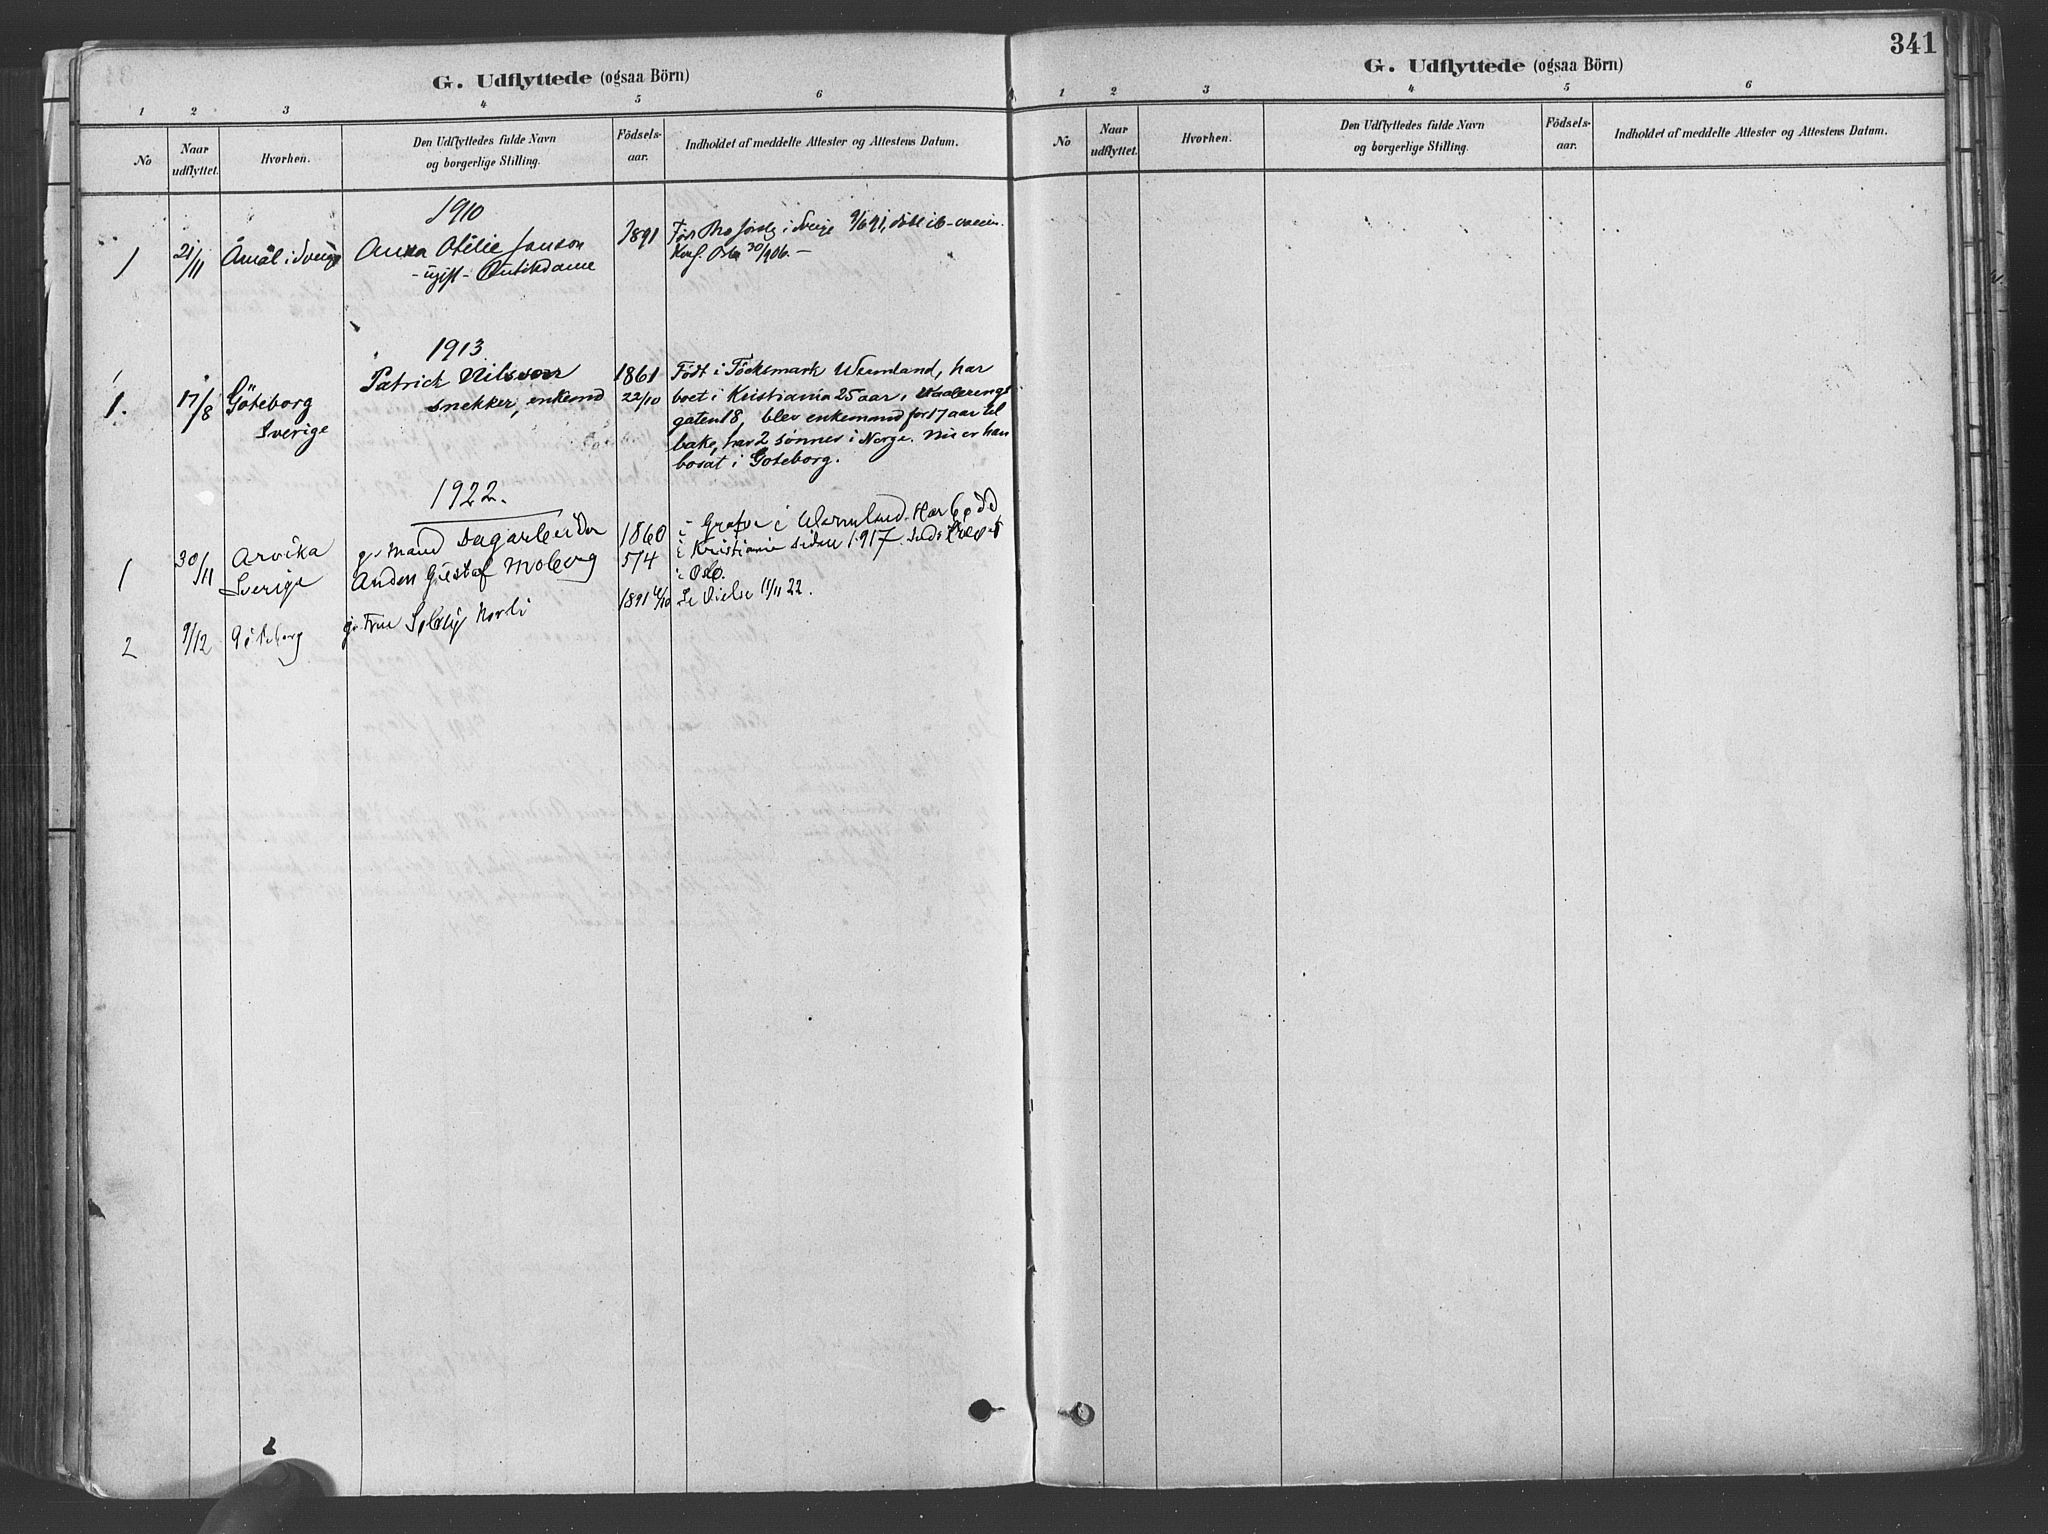 G. Udflyttede (ogsaa Börn)
1 2 3 4 5 6
No
Naar udflyttet.
Hvorhen.
Den Udflyttedes fulde Navn
og borgerlige Stilling.
Födsels-
aar.
Indholdet af meddelte Attester og Attestens Datum.
1910
1 21/11 Åmål i Sverige Anna Otilie Janson 1891 Født Bro i Sverige 9/6 91, døbt ib - vaccin.
- ugift - Butikdame Konf. Oslo 30/9 06. -
1913
1. 17/8 Göteborg Patrick Nilsson 1861 Født i Töcksmark Wermland, har
Sverige snekker, enkemd 22/10 boet i Kristiania 25 aar, i Vaalerengs
gaten 18, blev enkemand for 17 aar til
bake, har 2 sønner i Norge. Nu er han
bosat i Göteborg.
1922.
1 30/11 Arvika g. Mand Dagarbeider 1860 i Grafva i Wermland. Har bodd
Sverige Gustaf Moberg 5/4 i Kristiania siden 1917.
i Oslo.
2 9/12 Göteborg g. Frue Solveig Norli 1891 Se Vielse 11/11 22.
341
G. Udflyttede (ogsaa Börn)
1 2 3 4 5 6
No
Naar
udflyttet.
Hvorhen.
Den Udflyttedes fulde Navn
og borgerlige Stilling.
Födsels-
aar.
Indholdet af meddelte Attester og Attestens Datum.